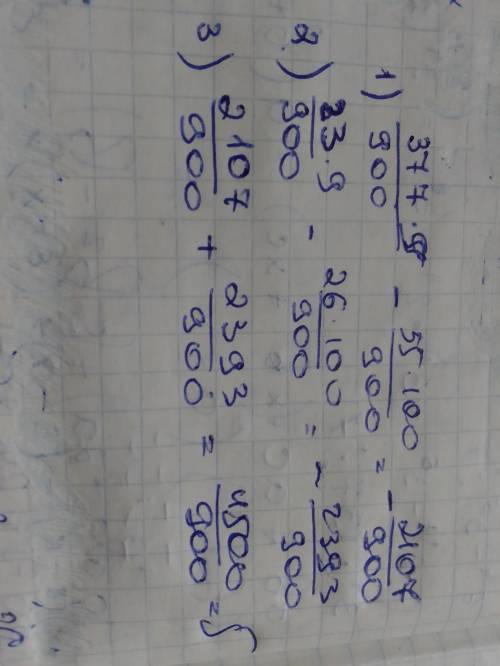 1) 377·9/900 - 55·100/900 = -2107/900
2) 23·9/900 - 26·100/900 = -2393/900
3) 2107/900 + 2393/900 = 4500/900 = 5